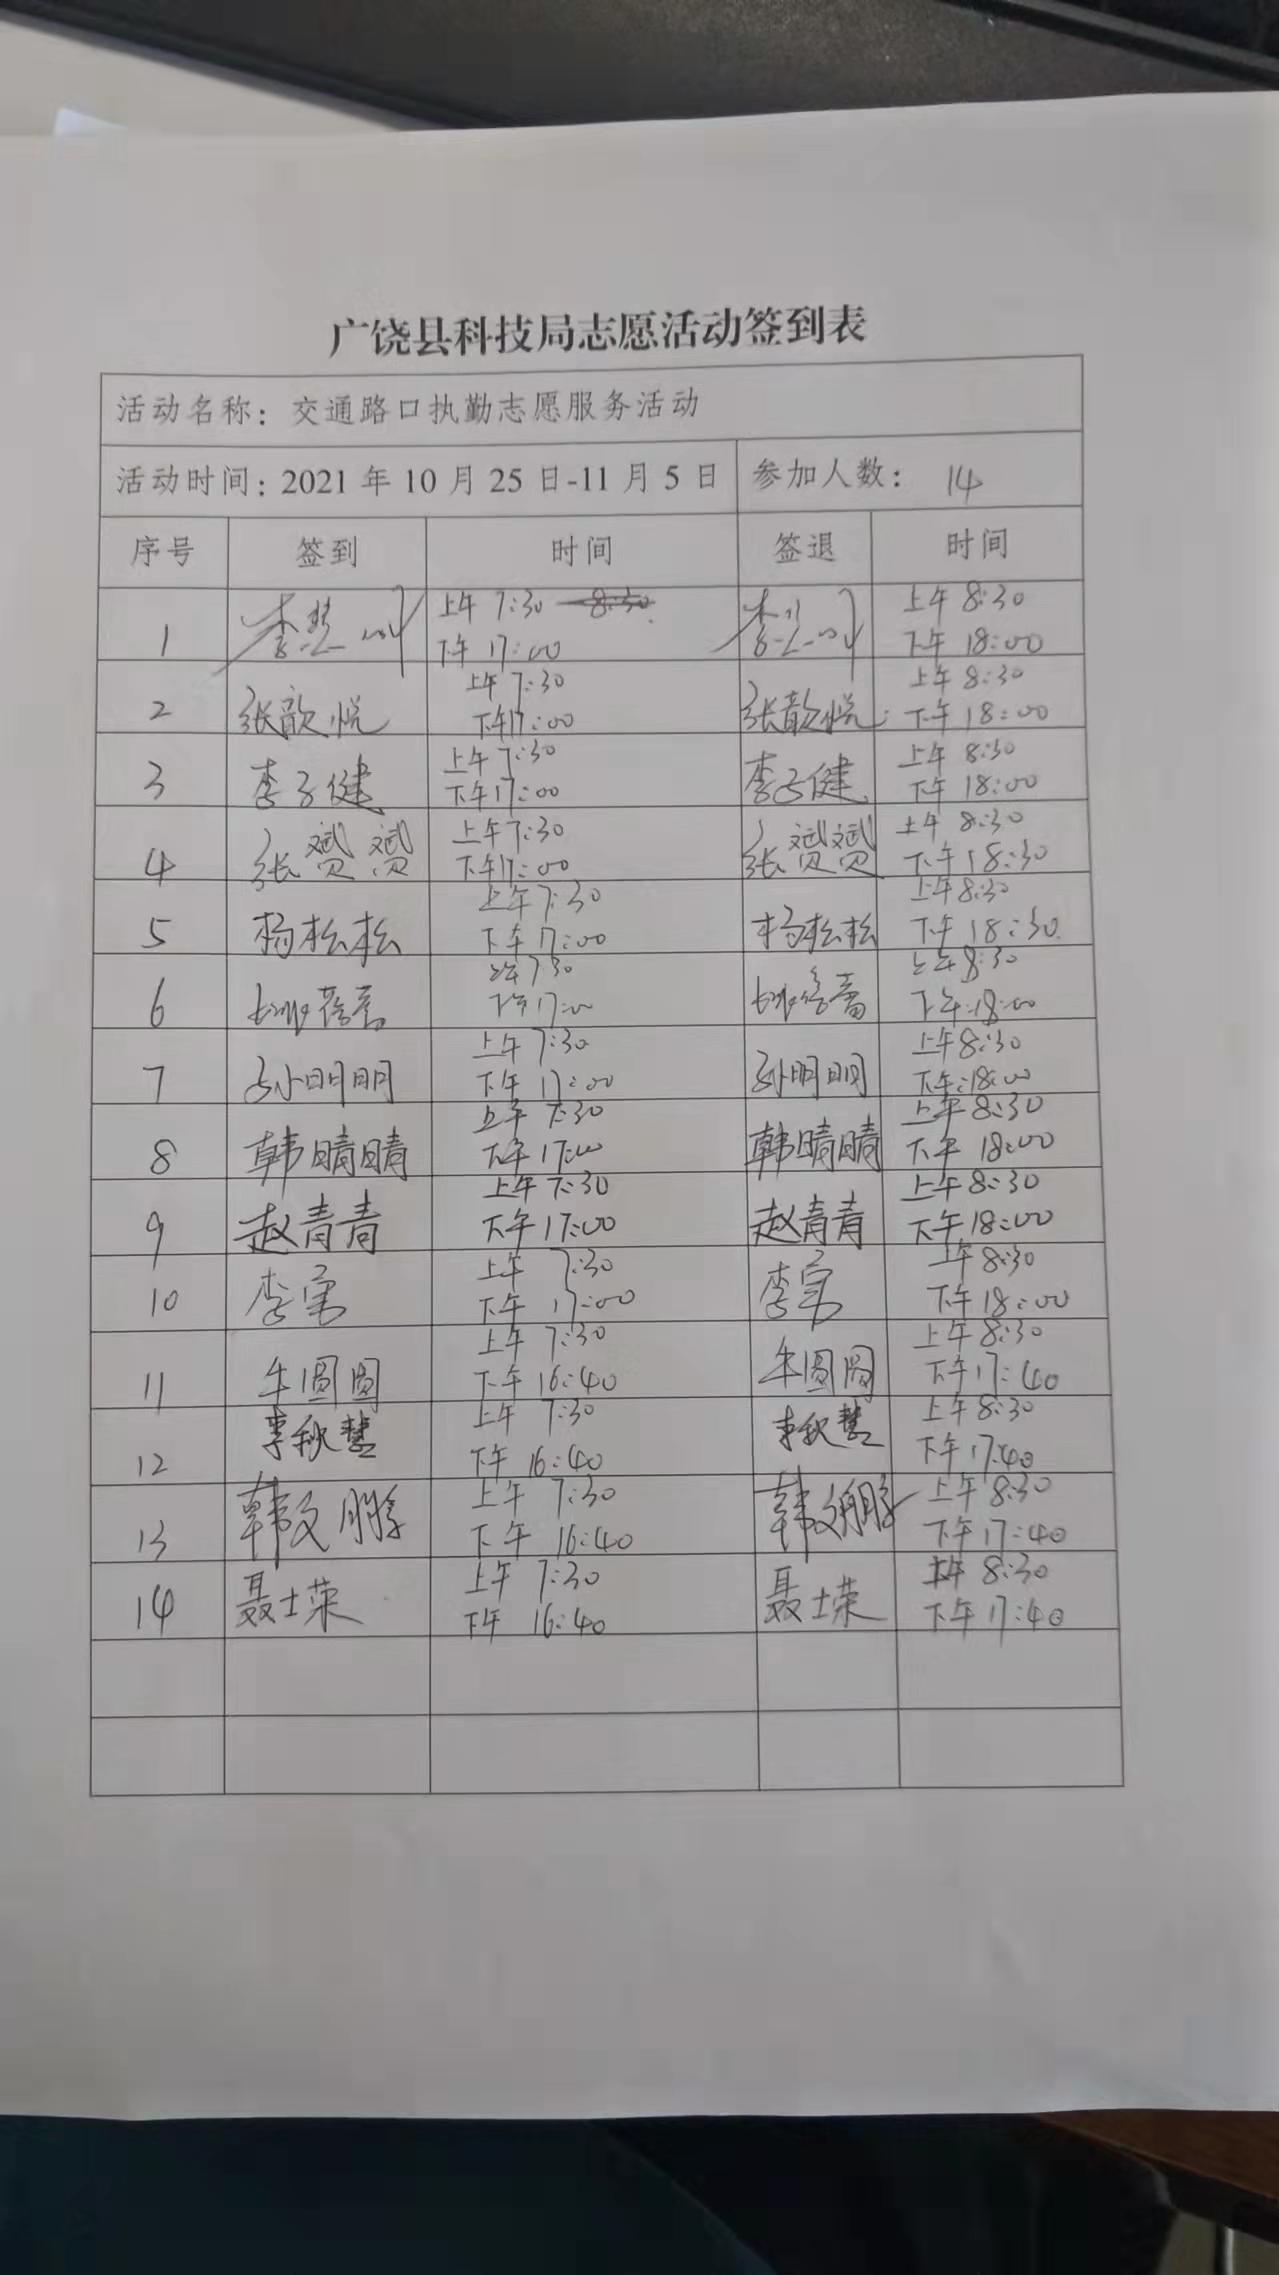 广饶县科技局志愿活动签到表
活动名称：交通路口执勤志愿服务活动
活动时间：2021年10月25日-11月5日 参加人数： 14
序号 签到 时间 签退 时间
1 上午 7:30 上午 8:30
下午 17:00 下午 18:00
2 张歆悦 上午 7:30 张歆悦 上午 8:30
下午17:00 下午 18:00
3 李子健 上午 7:30 李子健 上午 8:30
下午17:00 下午 18:00
4 张赟赟 上午 7:30 张赟赟 上午 8:30
下午17:00 下午 18:30
5 杨松松 上午 7:30 杨松松 上午 8:30
下午 17:00 下午 18:30
6 上午 7:30 上午 8:30
下午 17:00 下午 18:00
7 孙明明 上午 7:30 孙明明 上午 8:30
下午 17:00 下午 18:00
8 韩晴晴 上午 7:30 韩晴晴 上午 8:30
下午 17:00 下午 18:00
9 赵青青 上午 7:30 赵青青 上午 8:30
下午 17:00 下午 18:00
10 李 上午 7:30 李 上午 8:30
下午 17:00 下午 18:00
11 牛圆圆 上午 7:30 牛圆圆 上午 8:30
下午 16:40 下午 17:40
12 李秋慧 上午 7:30 李秋慧 上午 8:30
下午 16:40 下午 17:40
13 韩文鹏 上午 7:30 韩文鹏 上午 8:30
下午 16:40 下午 17:40
14 聂士荣 上午 7:30 聂士荣 上午 8:30
下午 16:40 下午 17:40